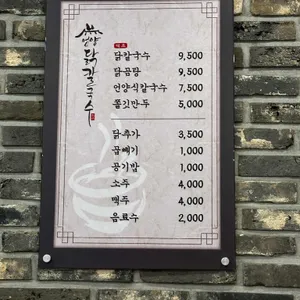 언양
닭칼국수
메뉴
닭칼국수 9,500
닭곰탕 9,500
언양식칼국수 7,500
쫄깃만두 5,000
닭추가 3,500
곱빼기 1,000
공기밥 1,000
소주 4,000
맥주 4,000
음료수 2,000